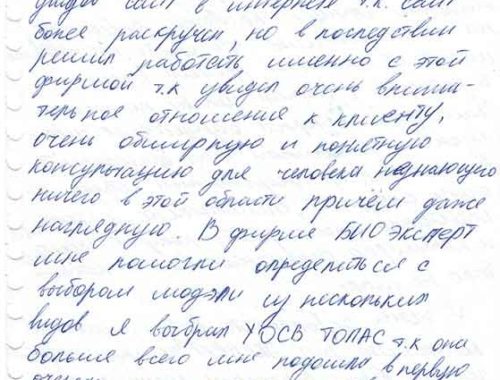 увидел сайт в интернете т.к. сайт
более раскручен, но в последствии
решил работать именно с этой
фирмой т.к увидел очень внима-
тельное отношения к клиенту,
очень обширную и понятную
консультацию для человека незнающего
ничего в этой области причём даже
наглядную. В фирме БИОЭксперт
мне помогли определиться с
выбором модели из нескольких
видов я выбрал УОСВ ТОПАС т.к она
больше всего мне подошла в первую